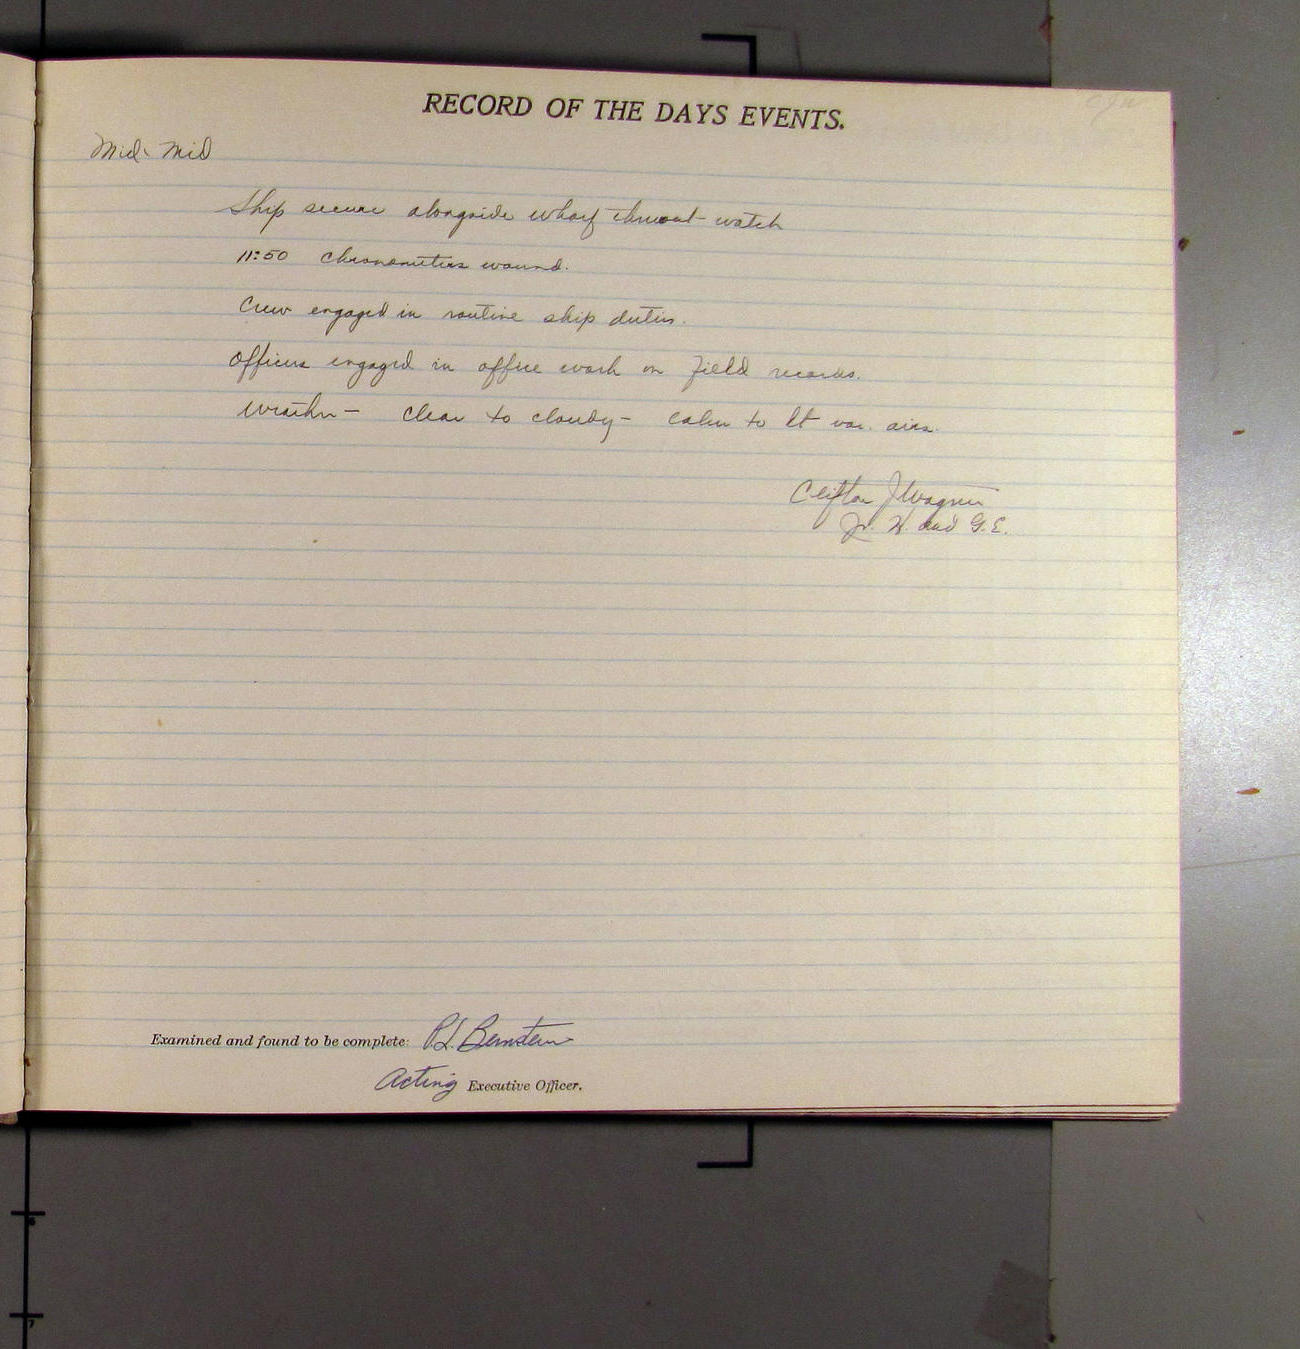 RECORD OF THE DAYS EVENTS.
Mid - Mid
Ship secure alongside wharf thruout watch
11:50 chronometers wound.
Crew engaged in routine ship duties.
Officers engaged in office work on field records.
Weather — clear to cloudy — calm to lt var. airs.
Clifton J Wagner
Jr. H. and G.E.
Examined and found to be complete: P.L. Bernstein
Acting Executive Officer.